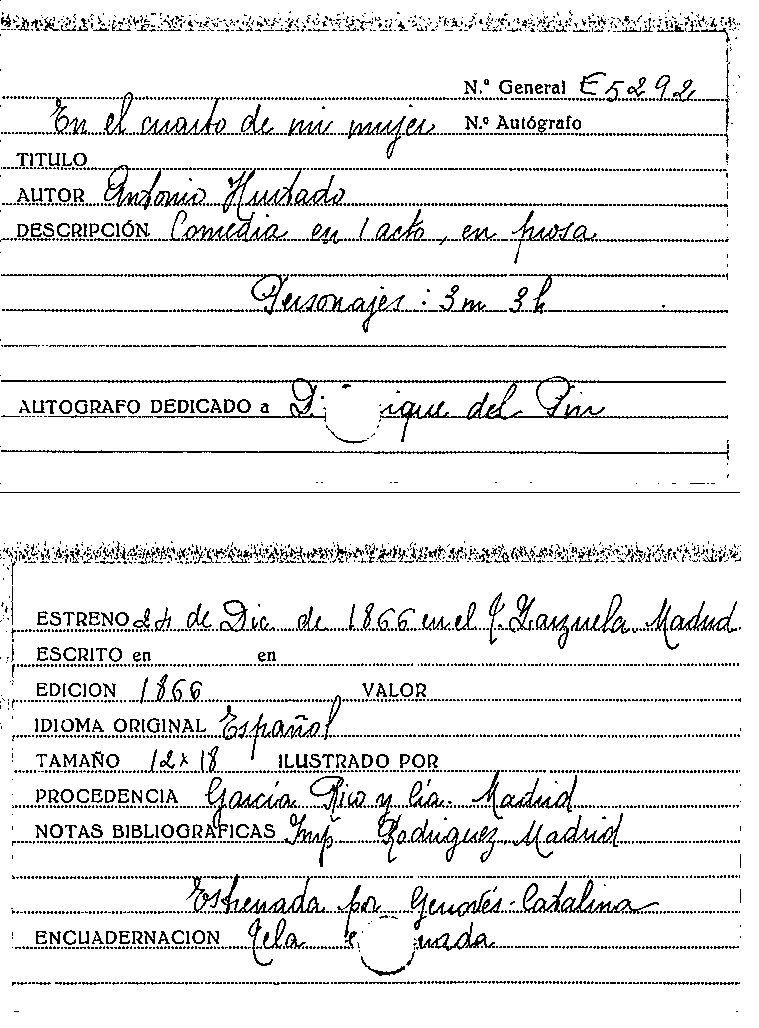 N.º General E5292
En el cuarto de mi mujer N.º Autógrafo
TITULO
AUTOR Antonio Hurtado
DESCRIPCIÓN Comedia en 1 acto, en prosa
Personajes: 3m 3h
AUTOGRAFO DEDICADO a D. ique del
ESTRENO 24 de Dic. de 1866 en el T. Zarzuela. Madrid
ESCRITO en en
EDICION 1866 VALOR
IDIOMA ORIGINAL Español
TAMAÑO 12x18 ILUSTRADO POR
PROCEDENCIA García Rico y Cía. Madrid
NOTAS BIBLIOGRAFICAS Imp. Rodriguez Madrid
Estrenada por Genovés-Catalina
ENCUADERNACION Tela nada